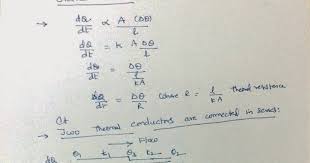 → dQ/dt ∝ A (Δθ)/l
dQ/dt = K A Δθ/l
dQ/dt = Δθ/(l/KA)
dQ/dt = Δθ/R (where R = l/KA thermal resistance
Ct
Two thermal conductors are connected in series:
→ Flow
→ dQ θ1 t1 θ3 t2 θ2